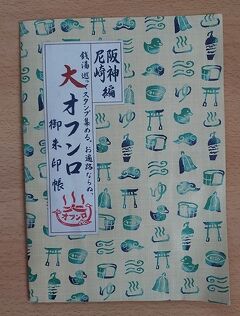 阪神
尼崎編
銭湯巡ってスタンプ集める。お遍路ならぬ、
大オフンロ
御朱印帳
オフンロ
ゆ